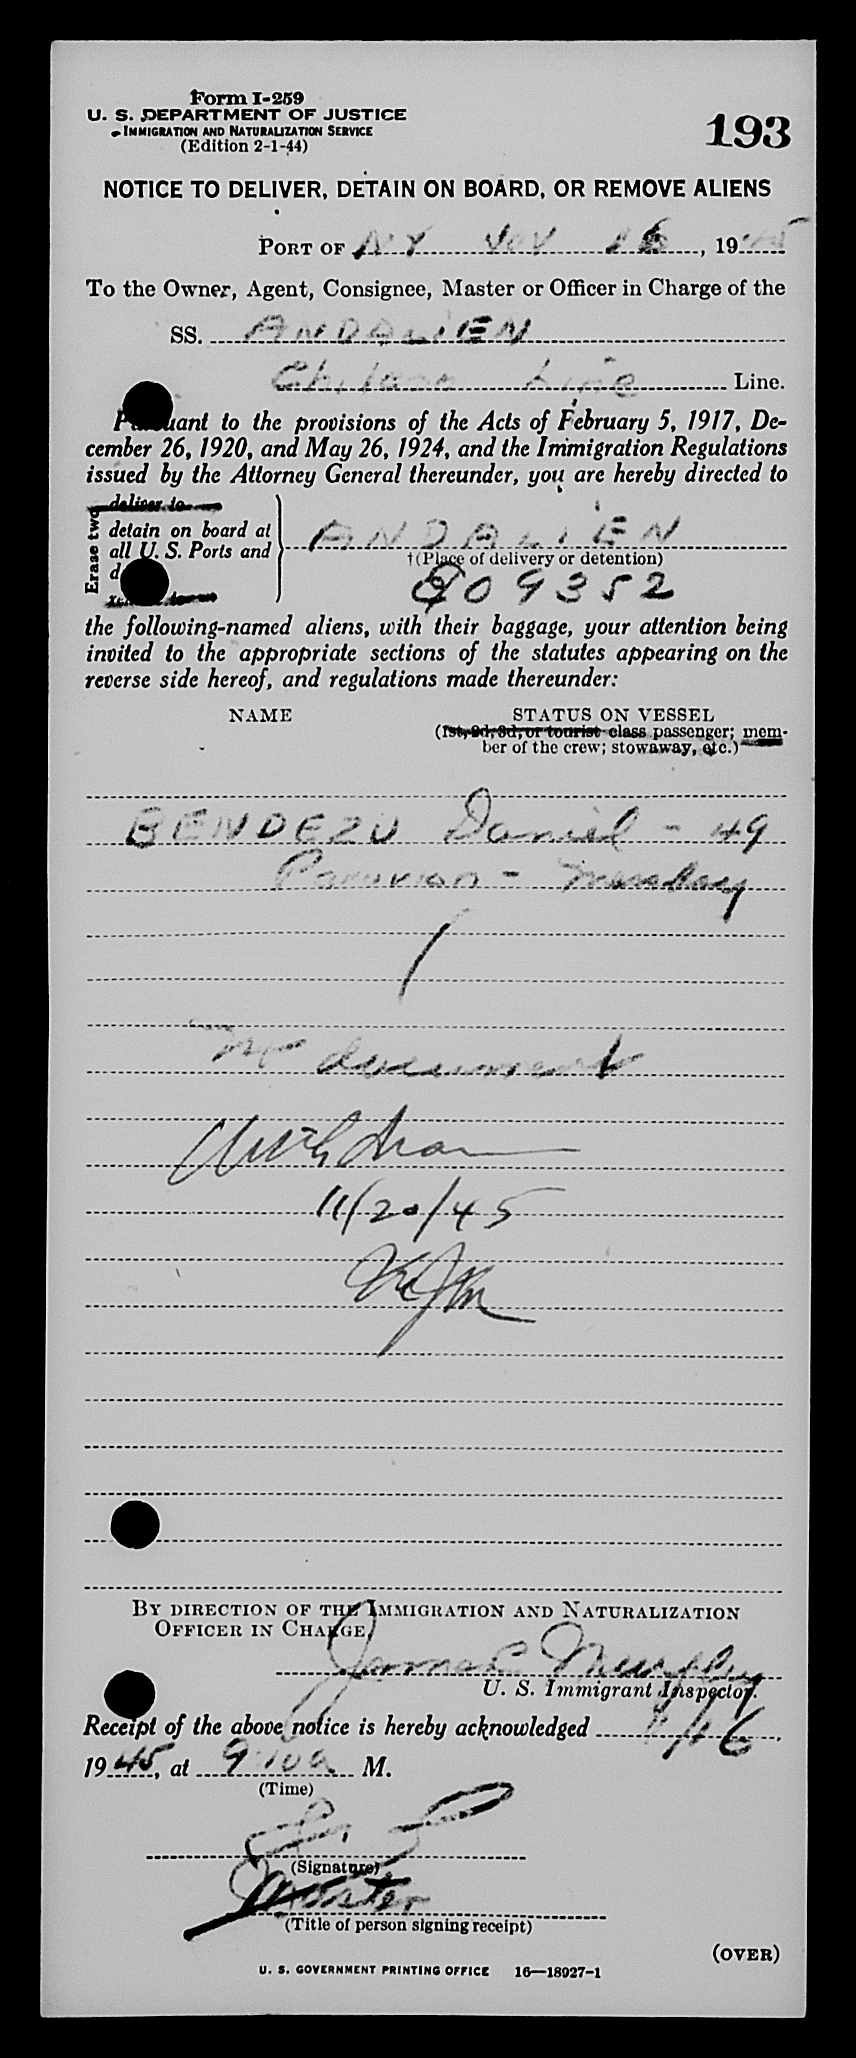 Form I-259
U. S. DEPARTMENT OF JUSTICE
IMMIGRATION AND NATURALIZATION SERVICE
(Edition 2-1-44)
193
NOTICE TO DELIVER, DETAIN ON BOARD, OR REMOVE ALIENS
PORT OF NY Nov 16, 1945
To the Owner, Agent, Consignee, Master or Officer in Charge of the
SS. ANDALIEN
Chilean Line Line.
Pursuant to the provisions of the Acts of February 5, 1917, De-
cember 26, 1920, and May 26, 1924, and the Immigration Regulations
issued by the Attorney General thereunder, you are hereby directed to
Erase two
deliver to
detain on board at
all U. S. Ports and
ANDALIEN
†(Place of delivery or detention)
909352
the following-named aliens, with their baggage, your attention being
invited to the appropriate sections of the statutes appearing on the
reverse side hereof, and regulations made thereunder:
NAME
STATUS ON VESSEL
(1st, 2d, 3d, or tourist class passenger; mem-
ber of the crew; stowaway, etc.)
BENDEZU Daniel - 49
Peruvian - Messboy
1
No document
Withdrawn
11/20/45
BY DIRECTION OF THE IMMIGRATION AND NATURALIZATION
OFFICER IN CHARGE,
James Murphy
U. S. Immigrant Inspector.
Receipt of the above notice is hereby acknowledged 11/16,
1945, at 9:10 a M.
(Time)
(Signature)
Master
(Title of person signing receipt)
(OVER)
U. S. GOVERNMENT PRINTING OFFICE 16—18927-1